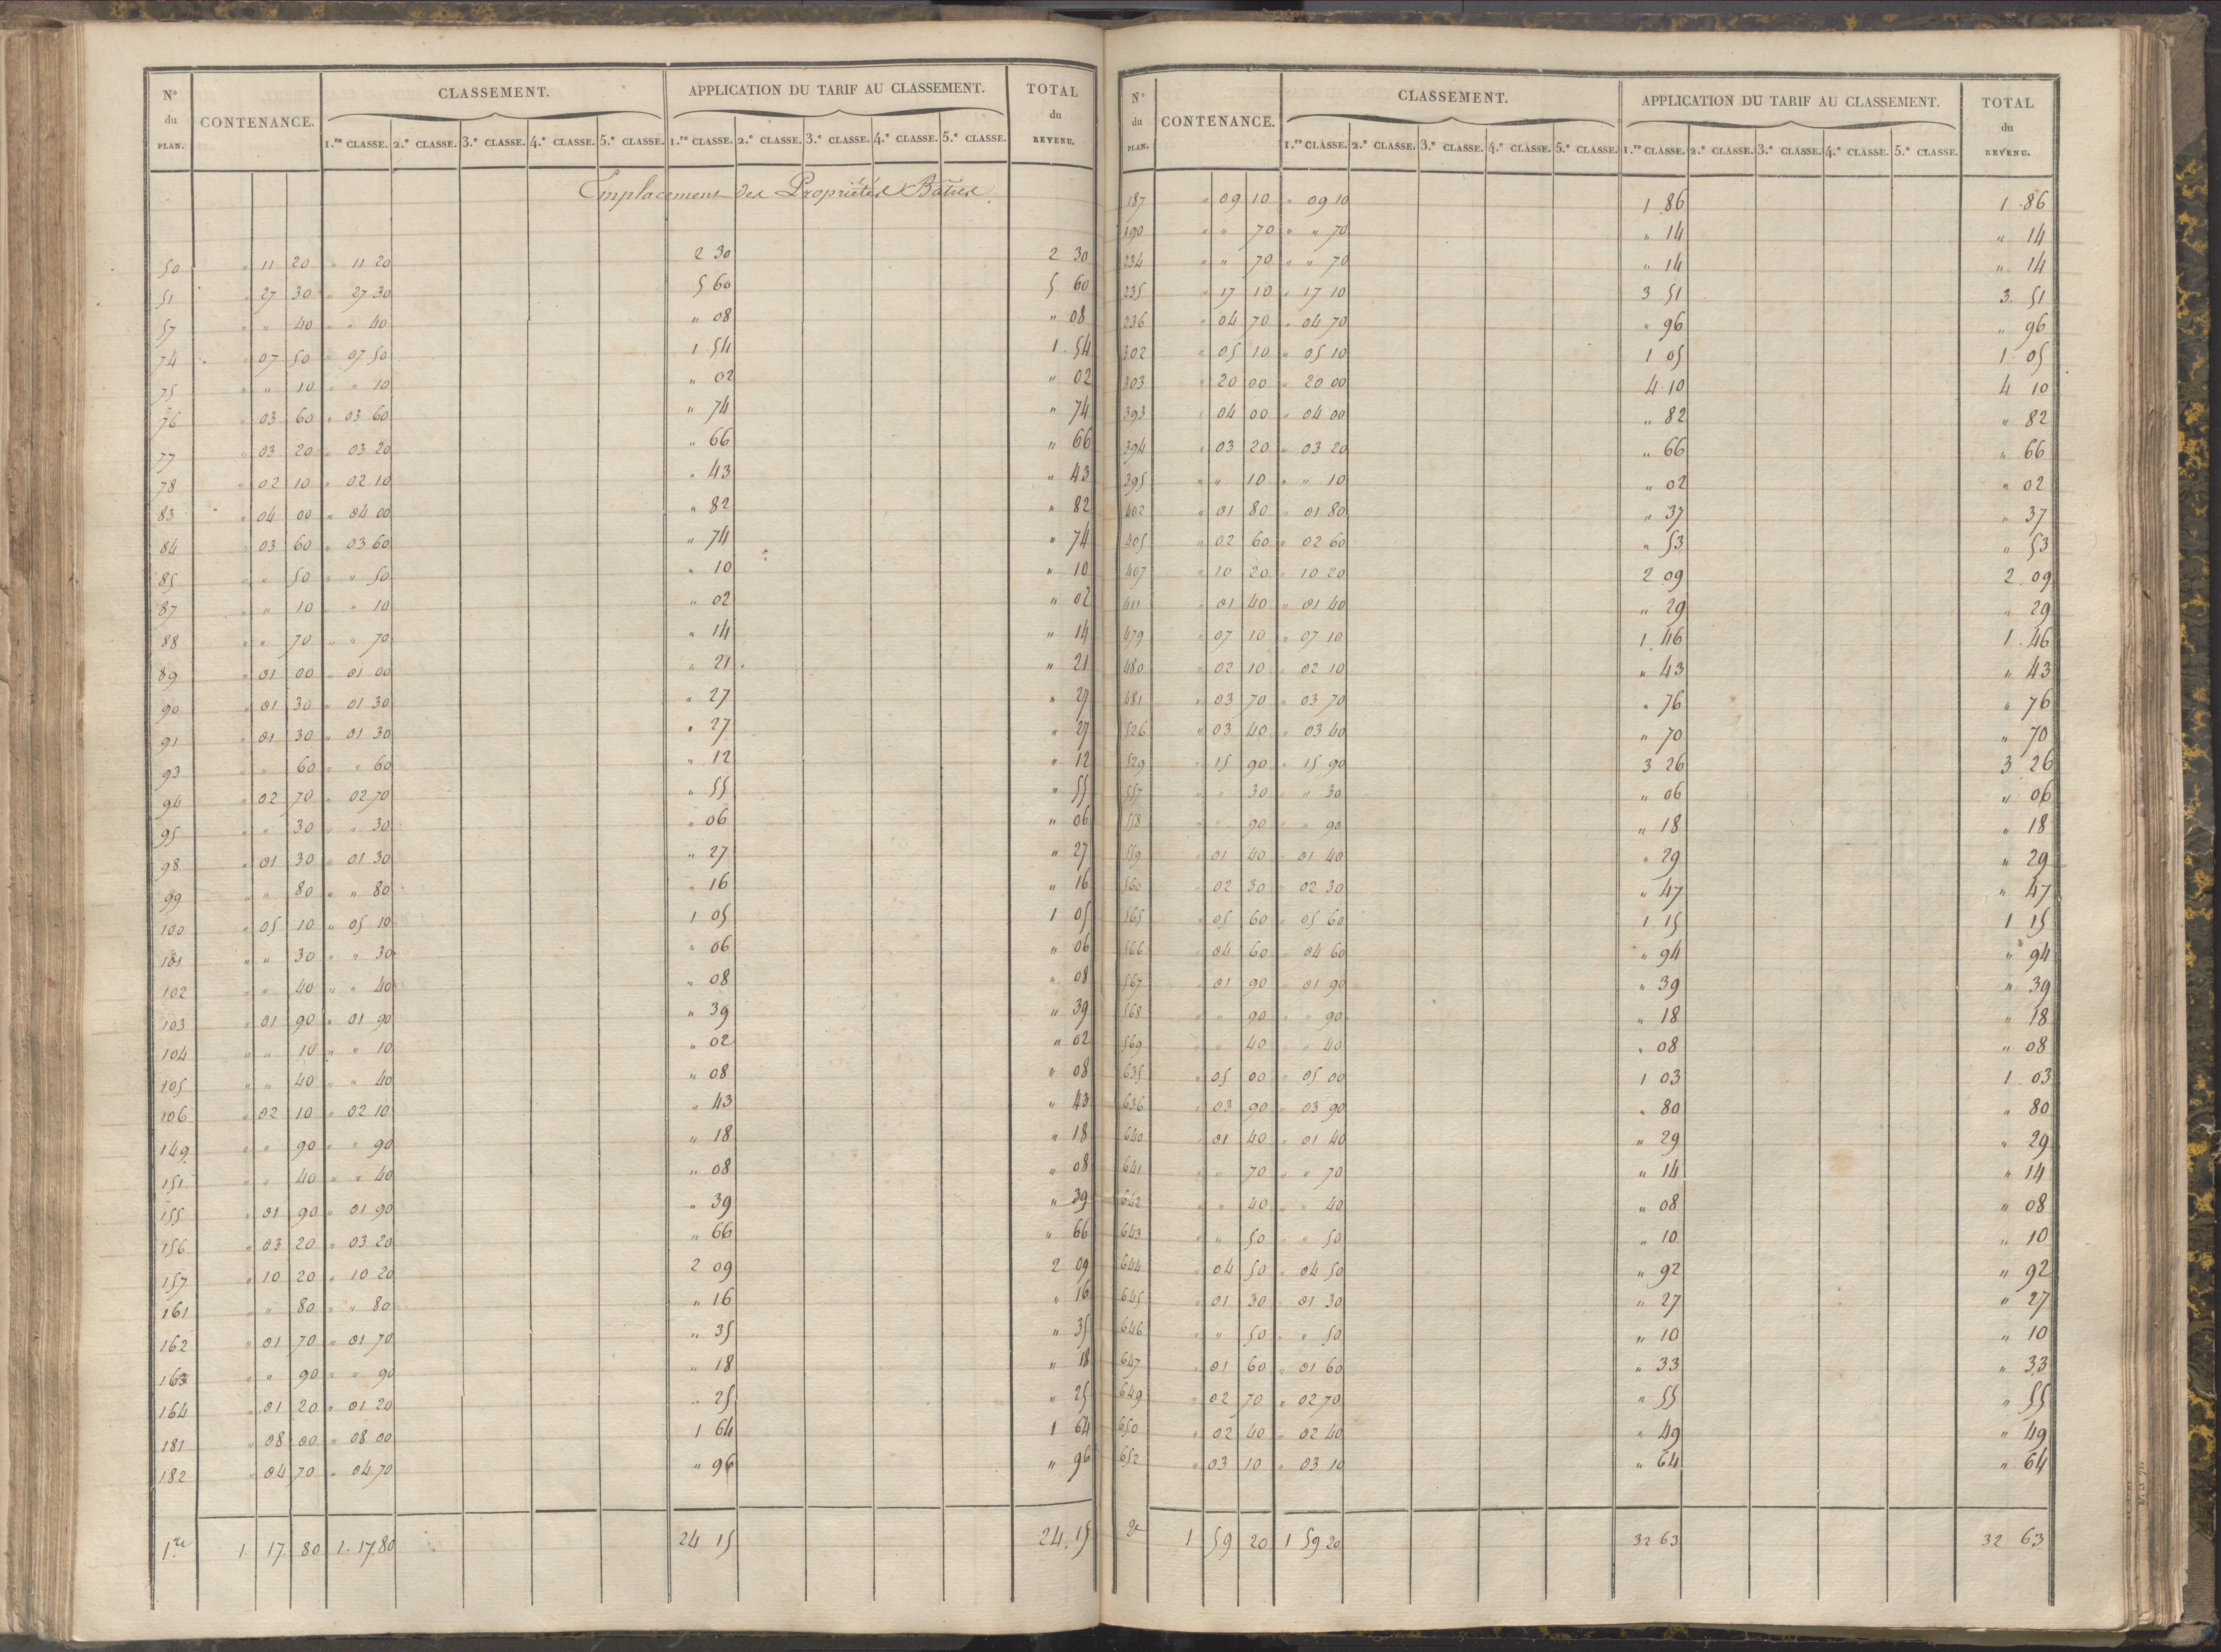 N° du PLAN. CONTENANCE. CLASSEMENT. APPLICATION DU TARIF AU CLASSEMENT. TOTAL du REVENU.
1.re CLASSE. 2.e CLASSE. 3.e CLASSE. 4.e CLASSE. 5.e CLASSE. 1.re CLASSE. 2.e CLASSE. 3.e CLASSE. 4.e CLASSE. 5.e CLASSE.
Emplacement des Propriétés Bâties.
50 " 11 20 " 11 20 2 30 2 30
51 " 27 30 " 27 30 5 60 5 60
57 " " 40 " " 40 " 08 " 08
74 " 07 50 " 07 50 1 54 1 54
75 " " 10 " " 10 " 02 " 02
76 " 03 60 " 03 60 " 74 " 74
77 " 03 20 " 03 20 " 66 " 66
78 " 02 10 " 02 10 " 43 " 43
83 " 04 00 " 04 00 " 82 " 82
84 " 03 60 " 03 60 " 74 " 74
85 " " 50 " " 50 " 10 " 10
87 " " 10 " " 10 " 02 " 02
88 " " 70 " " 70 " 14 " 14
89 " 01 00 " 01 00 " 21 " 21
90 " 01 30 " 01 30 " 27 " 27
91 " 01 30 " 01 30 " 27 " 27
93 " " 60 " " 60 " 12 " 12
94 " 02 70 " 02 70 " 55 " 55
95 " " 30 " " 30 " 06 " 06
98 " 01 30 " 01 30 " 27 " 27
99 " " 80 " " 80 " 16 " 16
100 " 05 10 " 05 10 1 05 1 05
101 " " 30 " " 30 " 06 " 06
102 " " 40 " " 40 " 08 " 08
103 " 01 90 " 01 90 " 39 " 39
104 " " 10 " " 10 " 02 " 02
105 " " 40 " " 40 " 08 " 08
106 " 02 10 " 02 10 " 43 " 43
149 " " 90 " " 90 " 18 " 18
151 " " 40 " " 40 " 08 " 08
155 " 01 90 " 01 90 " 39 " 39
156 " 03 20 " 03 20 " 66 " 66
157 " 10 20 " 10 20 2 09 2 09
161 " " 80 " " 80 " 16 " 16
162 " 01 70 " 01 70 " 35 " 35
163 " " 90 " " 90 " 18 " 18
164 " 01 20 " 01 20 " 25 " 25
181 " 08 00 " 08 00 1 64 1 64
182 " 04 70 " 04 70 " 96 " 96
1.re 1. 17. 80 1. 17. 80 24 15 24. 15
N° du PLAN. CONTENANCE. CLASSEMENT. APPLICATION DU TARIF AU CLASSEMENT. TOTAL du REVENU.
1.re CLASSE. 2.e CLASSE. 3.e CLASSE. 4.e CLASSE. 5.e CLASSE. 1.re CLASSE. 2.e CLASSE. 3.e CLASSE. 4.e CLASSE. 5.e CLASSE.
187 " 09 10 " 09 10 1 86 1 86
190 " " 70 " " 70 " 14 " 14
234 " " 70 " " 70 " 14 " 14
235 " 17 10 " 17 10 3 51 3 51
236 " 04 70 " 04 70 " 96 " 96
302 " 05 10 " 05 10 1 05 1 05
303 " 20 00 " 20 00 4 10 4 10
393 " 04 00 " 04 00 " 82 " 82
394 " 03 20 " 03 20 " 66 " 66
395 " " 10 " " 10 " 02 " 02
402 " 01 80 " 01 80 " 37 " 37
405 " 02 60 " 02 60 " 53 " 53
407 " 10 20 " 10 20 2 09 2 09
411 " 01 40 " 01 40 " 29 " 29
479 " 07 10 " 07 10 1 46 1 46
480 " 02 10 " 02 10 " 43 " 43
481 " 03 70 " 03 70 " 76 " 76
526 " 03 40 " 03 40 " 70 " 70
529 " 15 90 " 15 90 3 26 3 26
557 " " 30 " " 30 " 06 " 06
558 " " 90 " " 90 " 18 " 18
559 " 01 40 " 01 40 " 29 " 29
560 " 02 30 " 02 30 " 47 " 47
565 " 05 60 " 05 60 1 15 1 15
566 " 04 60 " 04 60 " 94 " 94
567 " 01 90 " 01 90 " 39 " 39
568 " " 90 " " 90 " 18 " 18
569 " " 40 " " 40 " 08 " 08
635 " 05 00 " 05 00 1 03 1 03
636 " 03 90 " 03 90 " 80 " 80
640 " 01 40 " 01 40 " 29 " 29
641 " " 70 " " 70 " 14 " 14
642 " " 40 " " 40 " 08 " 08
643 " " 50 " " 50 " 10 " 10
644 " 04 50 " 04 50 " 92 " 92
645 " 01 30 " 01 30 " 27 " 27
646 " " 50 " " 50 " 10 " 10
647 " 01 60 " 01 60 " 33 " 33
649 " 02 70 " 02 70 " 55 " 55
650 " 02 40 " 02 40 " 49 " 49
652 " 03 10 " 03 10 " 64 " 64
2e 1 59 20 1 59 20 32 63 32 63